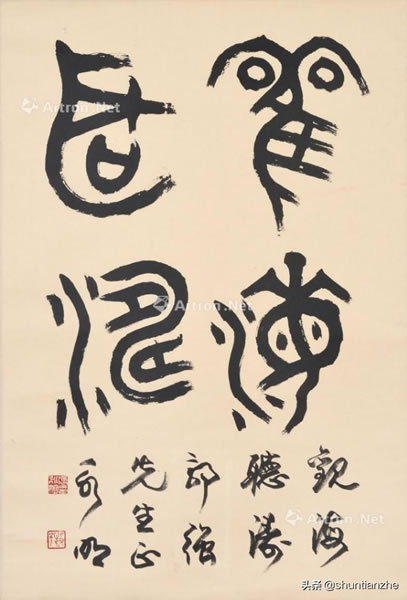 雚海
聽濤
觀海
聽濤
強
先生正
Artron.Net
Artron.Net
Artron.Net
Artron.Net
头条 @shuntianzhe